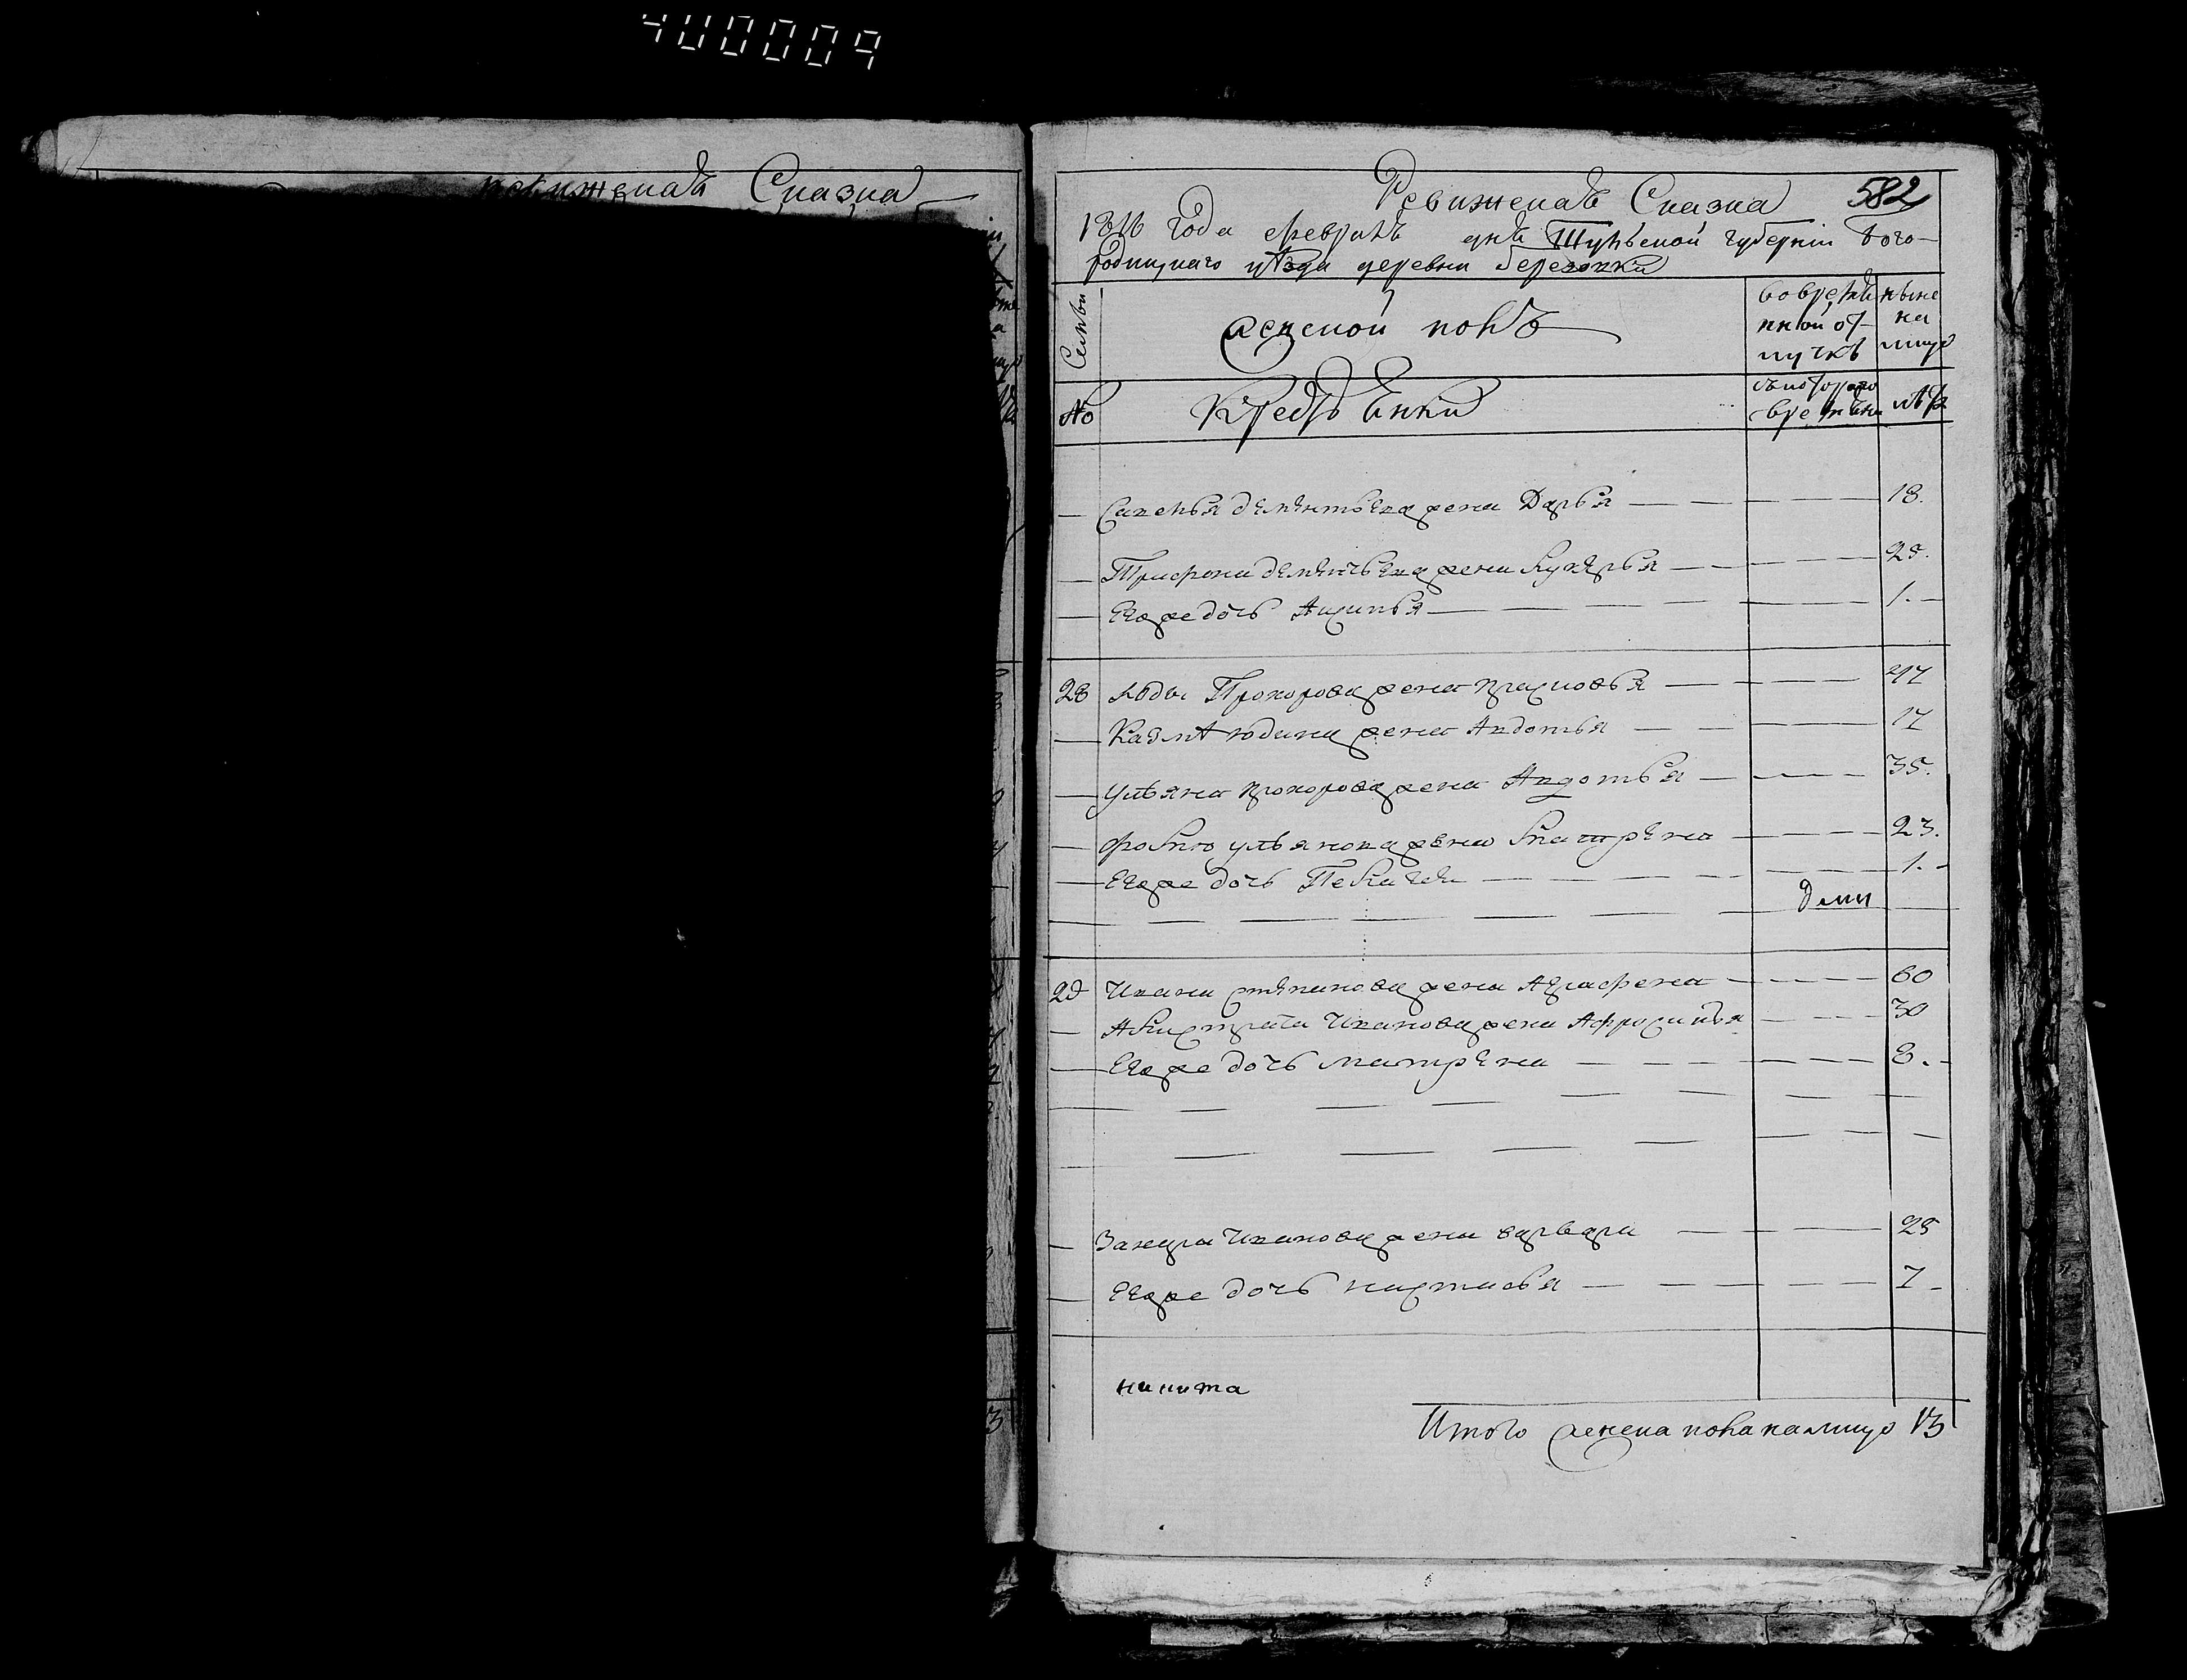 400009
Ревижская Сказка
Ревижская Сказка 582
1816 года февраля дня Тульской губернии Бого-
родицкаго уѣзда деревни березовки
Семьи
женской полъ
во времян
нной от
лучкѣ
ныне
на
лицо
№
Крестьянки
съ которого
времяни
лѣта
Савелья дементьева жена Дарья 18.
Трифона дементьева жена Лукерья 25.
Ево же дочь Акулина 1.
28 Юды Прохорова жена прасковья 47
Казмы юдина жена Авдотья 17
Ульяна прохорова жена Авдотья 35.
ульянова жена Матрена 23.
Ево же дочь Пелагея 1.
Ивана степанова жена Аграфена 60
Ивановa жена Афросинья 30
Ево же дочь матрена 8.
Захара Иванова жена варвара 25
Ево же дочь настасья 7
никита
Итого женска пола налицо 13